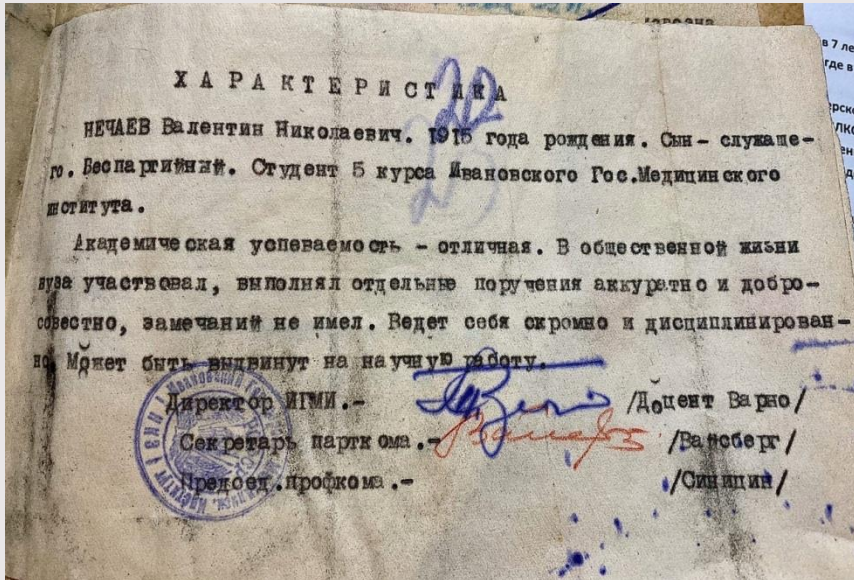 ХАРАКТЕРИСТИКА
22
НЕЧАЕВ Валентин Николаевич. 1915 года рождения. Сын- служаще-
го. Беспартийный. Студент 5 курса Ивановского Гос.Медицинского
института.
Академическая успеваемость - отличная. В общественной жизни
вуза участвовал, выполнял отдельные поручения аккуратно и добро-
совестно, замечаний не имел. Ведет себя скромно и дисциплинирован-
но. Может быть выдвинут на научную работу.
Директор ИГМИ.- /Доцент Варно/
Секретарь парткома.- /Вайсберг/
Председ.профкома.- /Синицин/
в 7 ле
где в